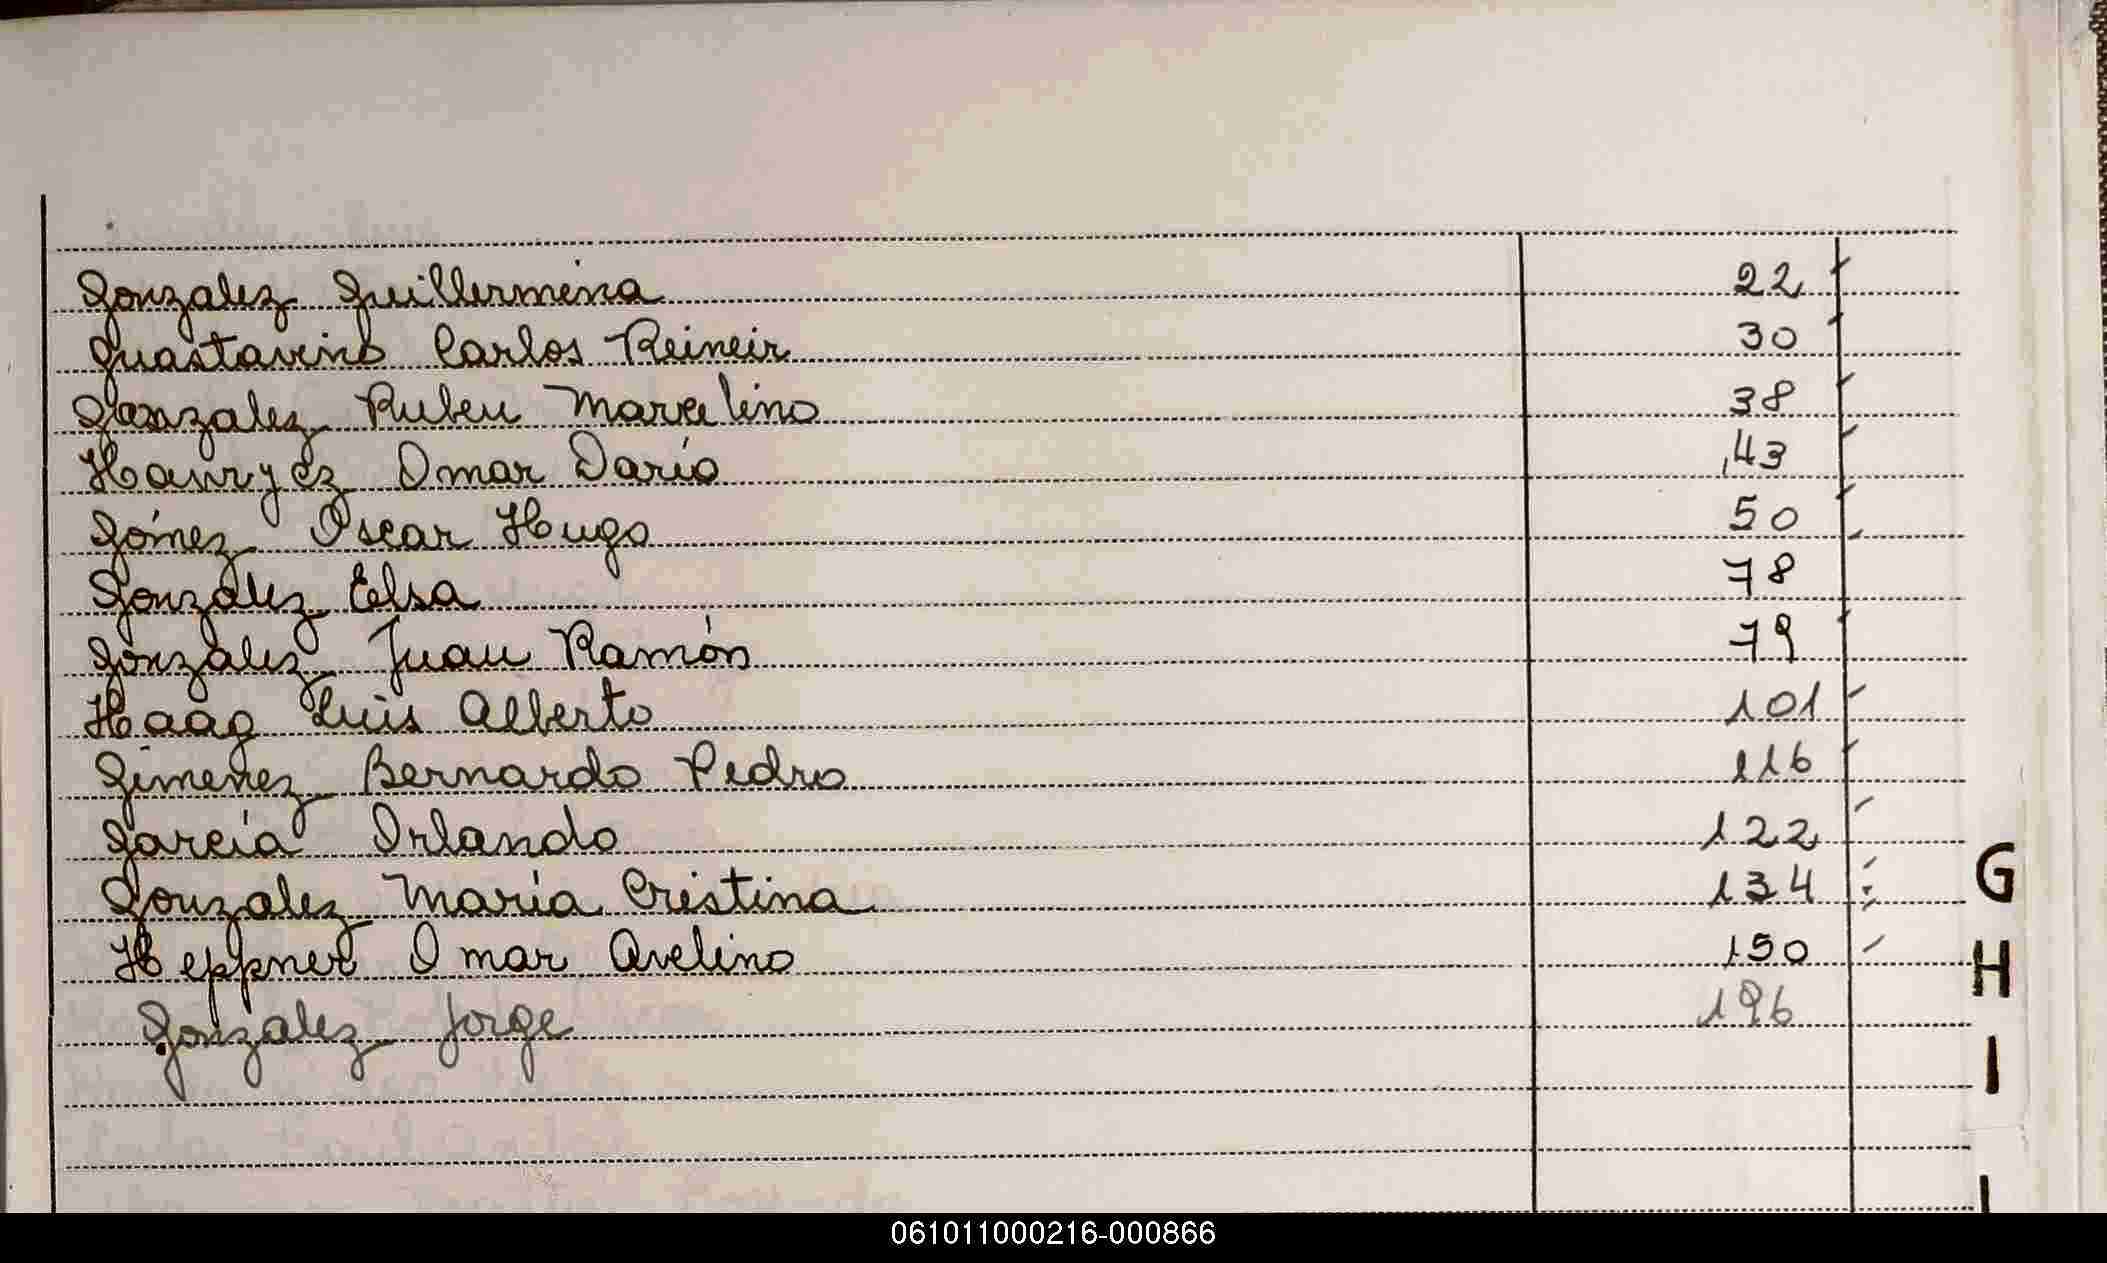 Gonzalez Guillermina 22
Guastavino Carlos Reineir 30
Gonzalez Ruben Marcelino 38
Omar Darío 43
Gómez Oscar Hugo 50
González Elsa 78
González Juan Ramón 79
Haag Luis Alberto 101
Gimenez Bernardo Pedro 116
García Orlando 122
Gonzalez María Cristina 134
Heppner Omar Avelino 150
Gonzalez Jorge 196
G
H
I
061011000216-000866